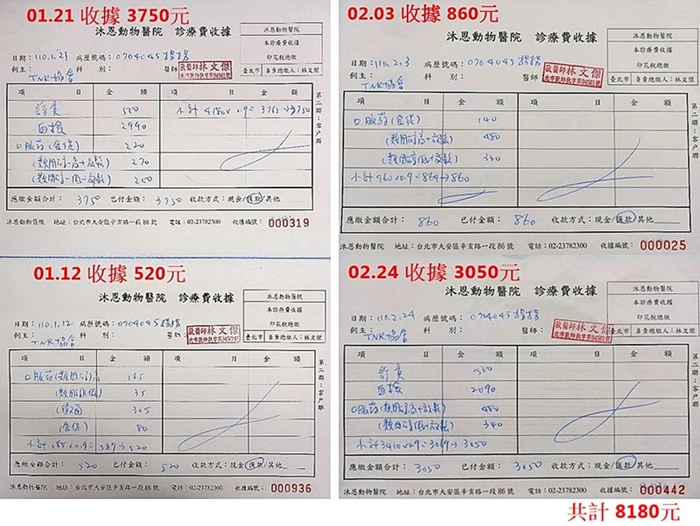 01.21 收據 3750元
沐恩動物醫院 診療費收據
沐恩動物醫院
本診療費收據
印花稅總繳
臺北市 負責總繳人:林文傑
日期:110.1.21 病歷號碼:0704045
飼主: TNR協會 科別: 醫師:
獸醫師林文傑
項目 金額 項目 金額
診費 500 小計 4180×0.9=3762→3750
血檢 2990
口服药(食慾) 220
270
應繳金額合計: 3750 已付金額: 3750 收款方式:現金/匯款/其他
沐恩動物醫院 地址:台北市大安區辛亥路一段86號 電話:02-23782300 收據編號: 000319
02.03 收據 860元
沐恩動物醫院 診療費收據
沐恩動物醫院
本診療費收據
印花稅總繳
臺北市 負責總繳人:林文傑
日期:110.2.3 病歷號碼:0704045
飼主: TNR協會 科別: 醫師:
獸醫師林文傑
項目 金額 項目 金額
口服药(食慾) 140
480
340
小計960×0.9=864→860
應繳金額合計: 860 已付金額: 860 收款方式:現金/匯款/其他
沐恩動物醫院 地址:台北市大安區辛亥路一段86號 電話:02-23782300 收據編號: 000025
01.12 收據 520元
沐恩動物醫院 診療費收據
沐恩動物醫院
本診療費收據
印花稅總繳
臺北市 負責總繳人:林文傑
日期:110.1.12 病歷號碼:0704045
飼主: TNR協會 科別: 醫師:
獸醫師林文傑
項目 金額 項目 金額
口服药 165
35
305
(食慾) 80
應繳金額合計: 520 已付金額: 520 收款方式:現金/匯款/其他
沐恩動物醫院 地址:台北市大安區辛亥路一段86號 電話:02-23782300 收據編號: 000936
02.24 收據 3050元
沐恩動物醫院 診療費收據
沐恩動物醫院
本診療費收據
印花稅總繳
臺北市 負責總繳人:林文傑
日期:110.2.24 病歷號碼:0704045
飼主: TNR協會 科別: 醫師:
獸醫師林文傑
項目 金額 項目 金額
診費 500
血檢 2090
口服药 480
340
小計3410×0.9=3069→3050
應繳金額合計: 3050 已付金額: 3050 收款方式:現金/匯款/其他
沐恩動物醫院 地址:台北市大安區辛亥路一段86號 電話:02-23782300 收據編號: 000442
共計 8180元